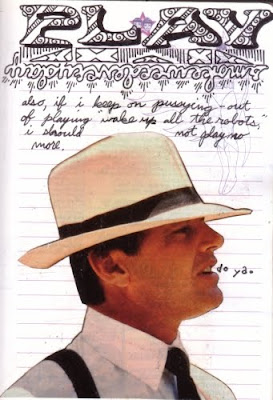 PLAY
also, if i keep on pussying-out
of playing wake up all the robots,
i should not play no
more.
do ya.